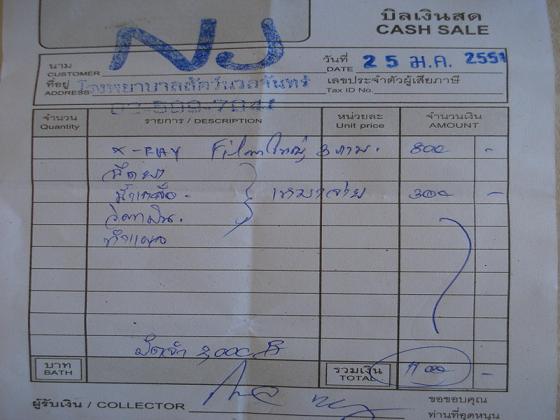 บิลเงินสด
CASH SALE
NJ
วันที่ DATE 25 ม.ค. 2551
นาม CUSTOMER
ที่อยู่ ADDRESS โรงพยาบาลสัตว์นวลจันทร์
เลขประจำตัวผู้เสียภาษี Tax ID No.
จำนวน Quantity รายการ / DESCRIPTION หน่วยละ Unit price จำนวนเงิน AMOUNT
X-RAY Film ใหญ่ 800 -
ฉีดยา
น้ำเกลือ เหมาจ่าย 300 -
ทำแผล
มัดจำ
บาท BATH รวมเงิน TOTAL 1100 -
ผู้รับเงิน / COLLECTOR
ขอขอบคุณ
ท่านที่อุดหนุน